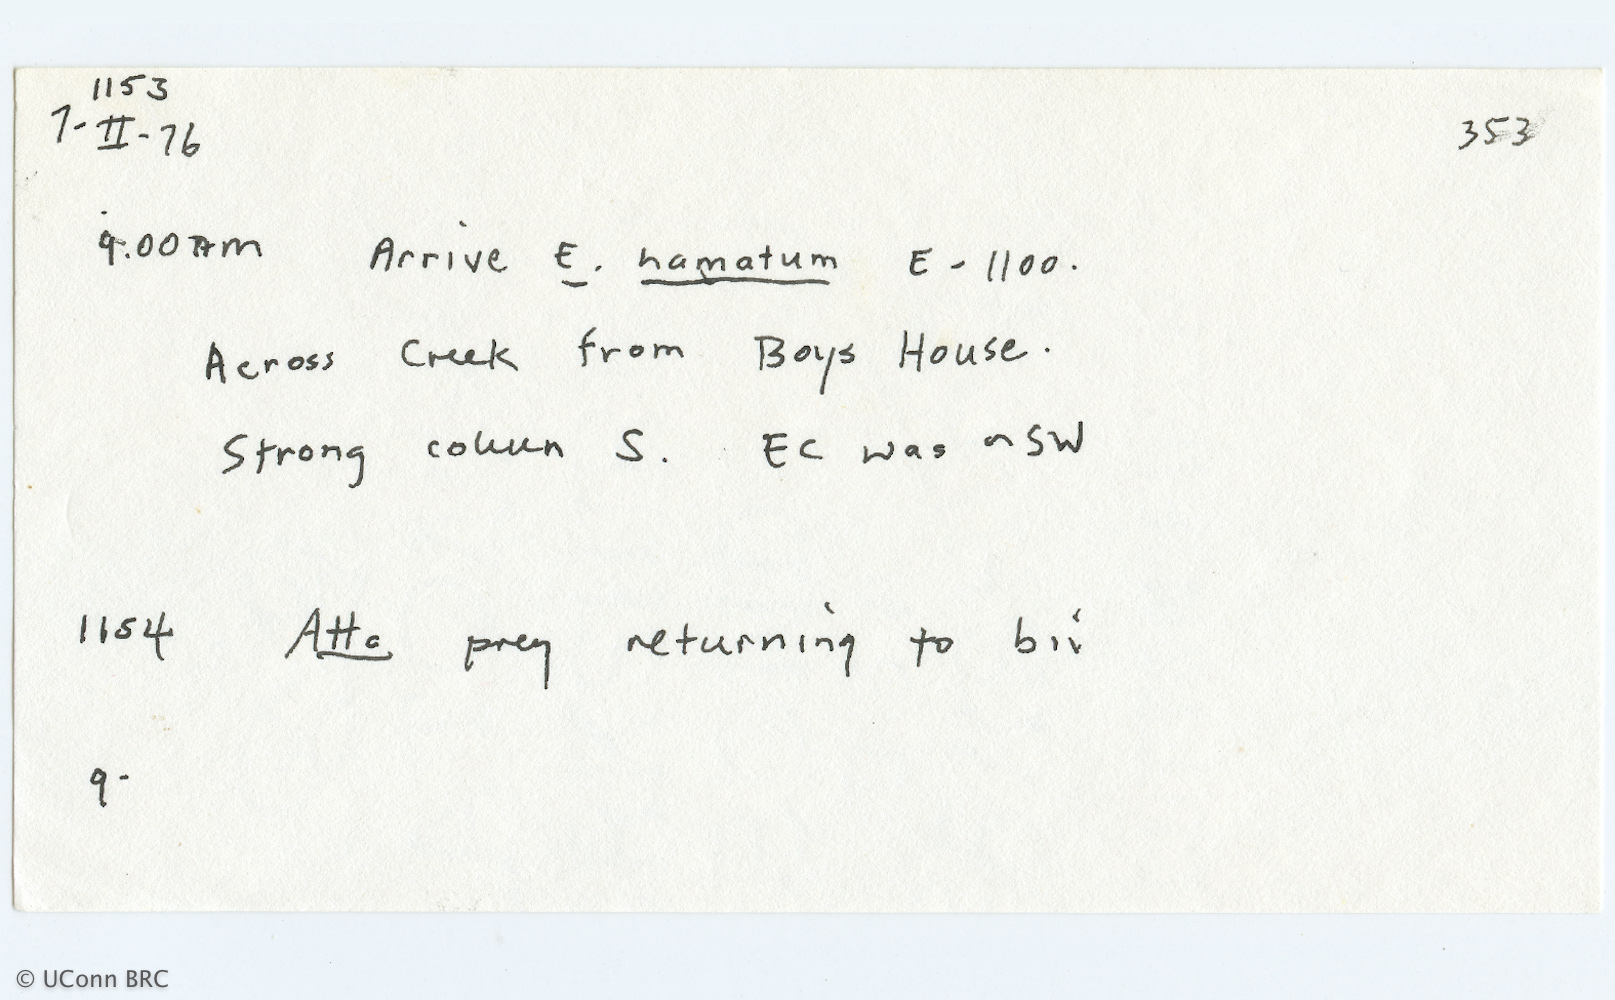 1153
7-II-76
353
9.00 AM Arrive E. hamatum E-1100.
Across Creek from Boys House.
Strong column S. EC was ~SW
1154 Atta prey returning to biv
9-
© UConn BRC